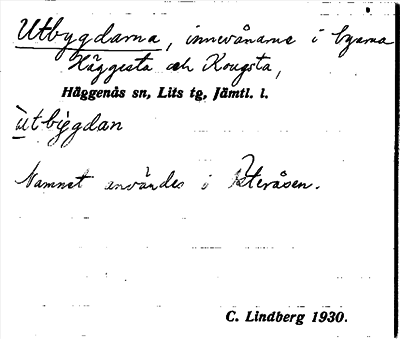 Utbygdarna, innevånarne i byarna
Häggesta och Kougsta,
Häggenås sn, Lits tg, Jämtl. l.
ùtbỳgdan
Namnet användes i Österåsen.
C. Lindberg 1930.